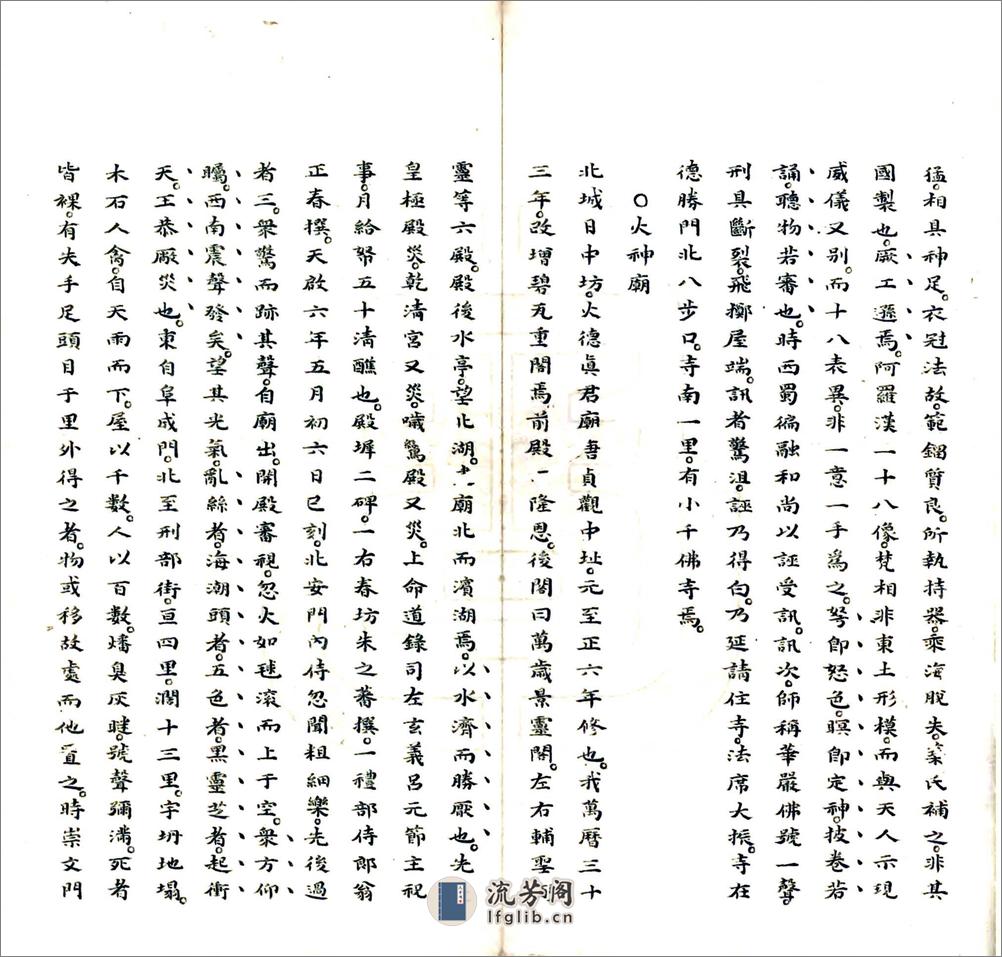 猛。相具神足。衣冠法故。範錮質良。所執持器。乘海脫失。某氏補之。非其
國製也。厥工遜焉。阿羅漢一十八像。梵相非東土形模。而與天人示現
威儀又別。而十八表異。非一意一手爲之。努卽怒色。瞑卽定神。披卷若
誦。聽物若審也。時西蜀徧融和尚以誣受訊。訊次。師稱華嚴佛號一聲。
刑具斷裂。飛擲屋端。訊者驚沮。誣乃得白。乃延請住寺。法席大振。寺在
德勝門北八步口。寺南一里。有小千佛寺焉。
○火神廟
北城日中坊。火德眞君廟。唐貞觀中址。元至正六年修也。我萬曆三十
三年。改增碧瓦重閣焉。前殿一隆恩。後閣曰萬歲景靈閣。左右輔聖弼
靈等六殿。殿後水亭。望北湖。廟北而濱湖焉。以水濟而勝厥也。先
皇極殿災。乾清宮又災。噦鸞殿又災。上命道錄司左玄義呂元節主祝
事。月給帑五十清醮也。殿墀二碑。一右春坊朱之蕃撰。一禮部侍郎翁
正春撰。天啟六年五月初六日巳刻。北安門內侍忽聞粗細樂。先後過
者三。衆驚而跡其聲。自廟出。開殿審視。忽火如毬滾而上于空。衆方仰
矚。西南震聲發矣。望其光氣。亂絲者。海潮頭者。五色者。黑靈芝者。起衝
天。王恭厰災也。東自阜成門。北至刑部街。亘四里。濶十三里。宇坍地塌。
木石人禽。自天雨而下。屋以千數。人以百數。燔臭灰瞇。號聲彌滿。死者
皆裸。有失手足頭目于里外得之者。物或移故處而他置之。時崇文門
流芳阁
lfglib.cn